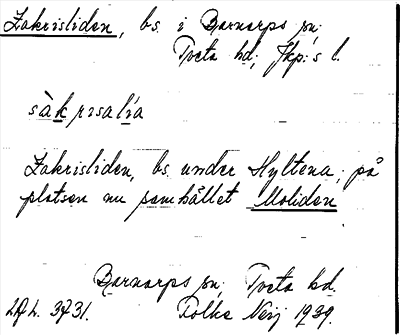 Zakrisliden, bs. i Barnarps sn.
Tveta hd; Jkp:s l.
sàkrısalía
Zakrisliden, bs. under Hyltena; på
platsen nu samhället Moliden
Barnarps sn, Tveta hd.
3731. Folke Neij 1939.